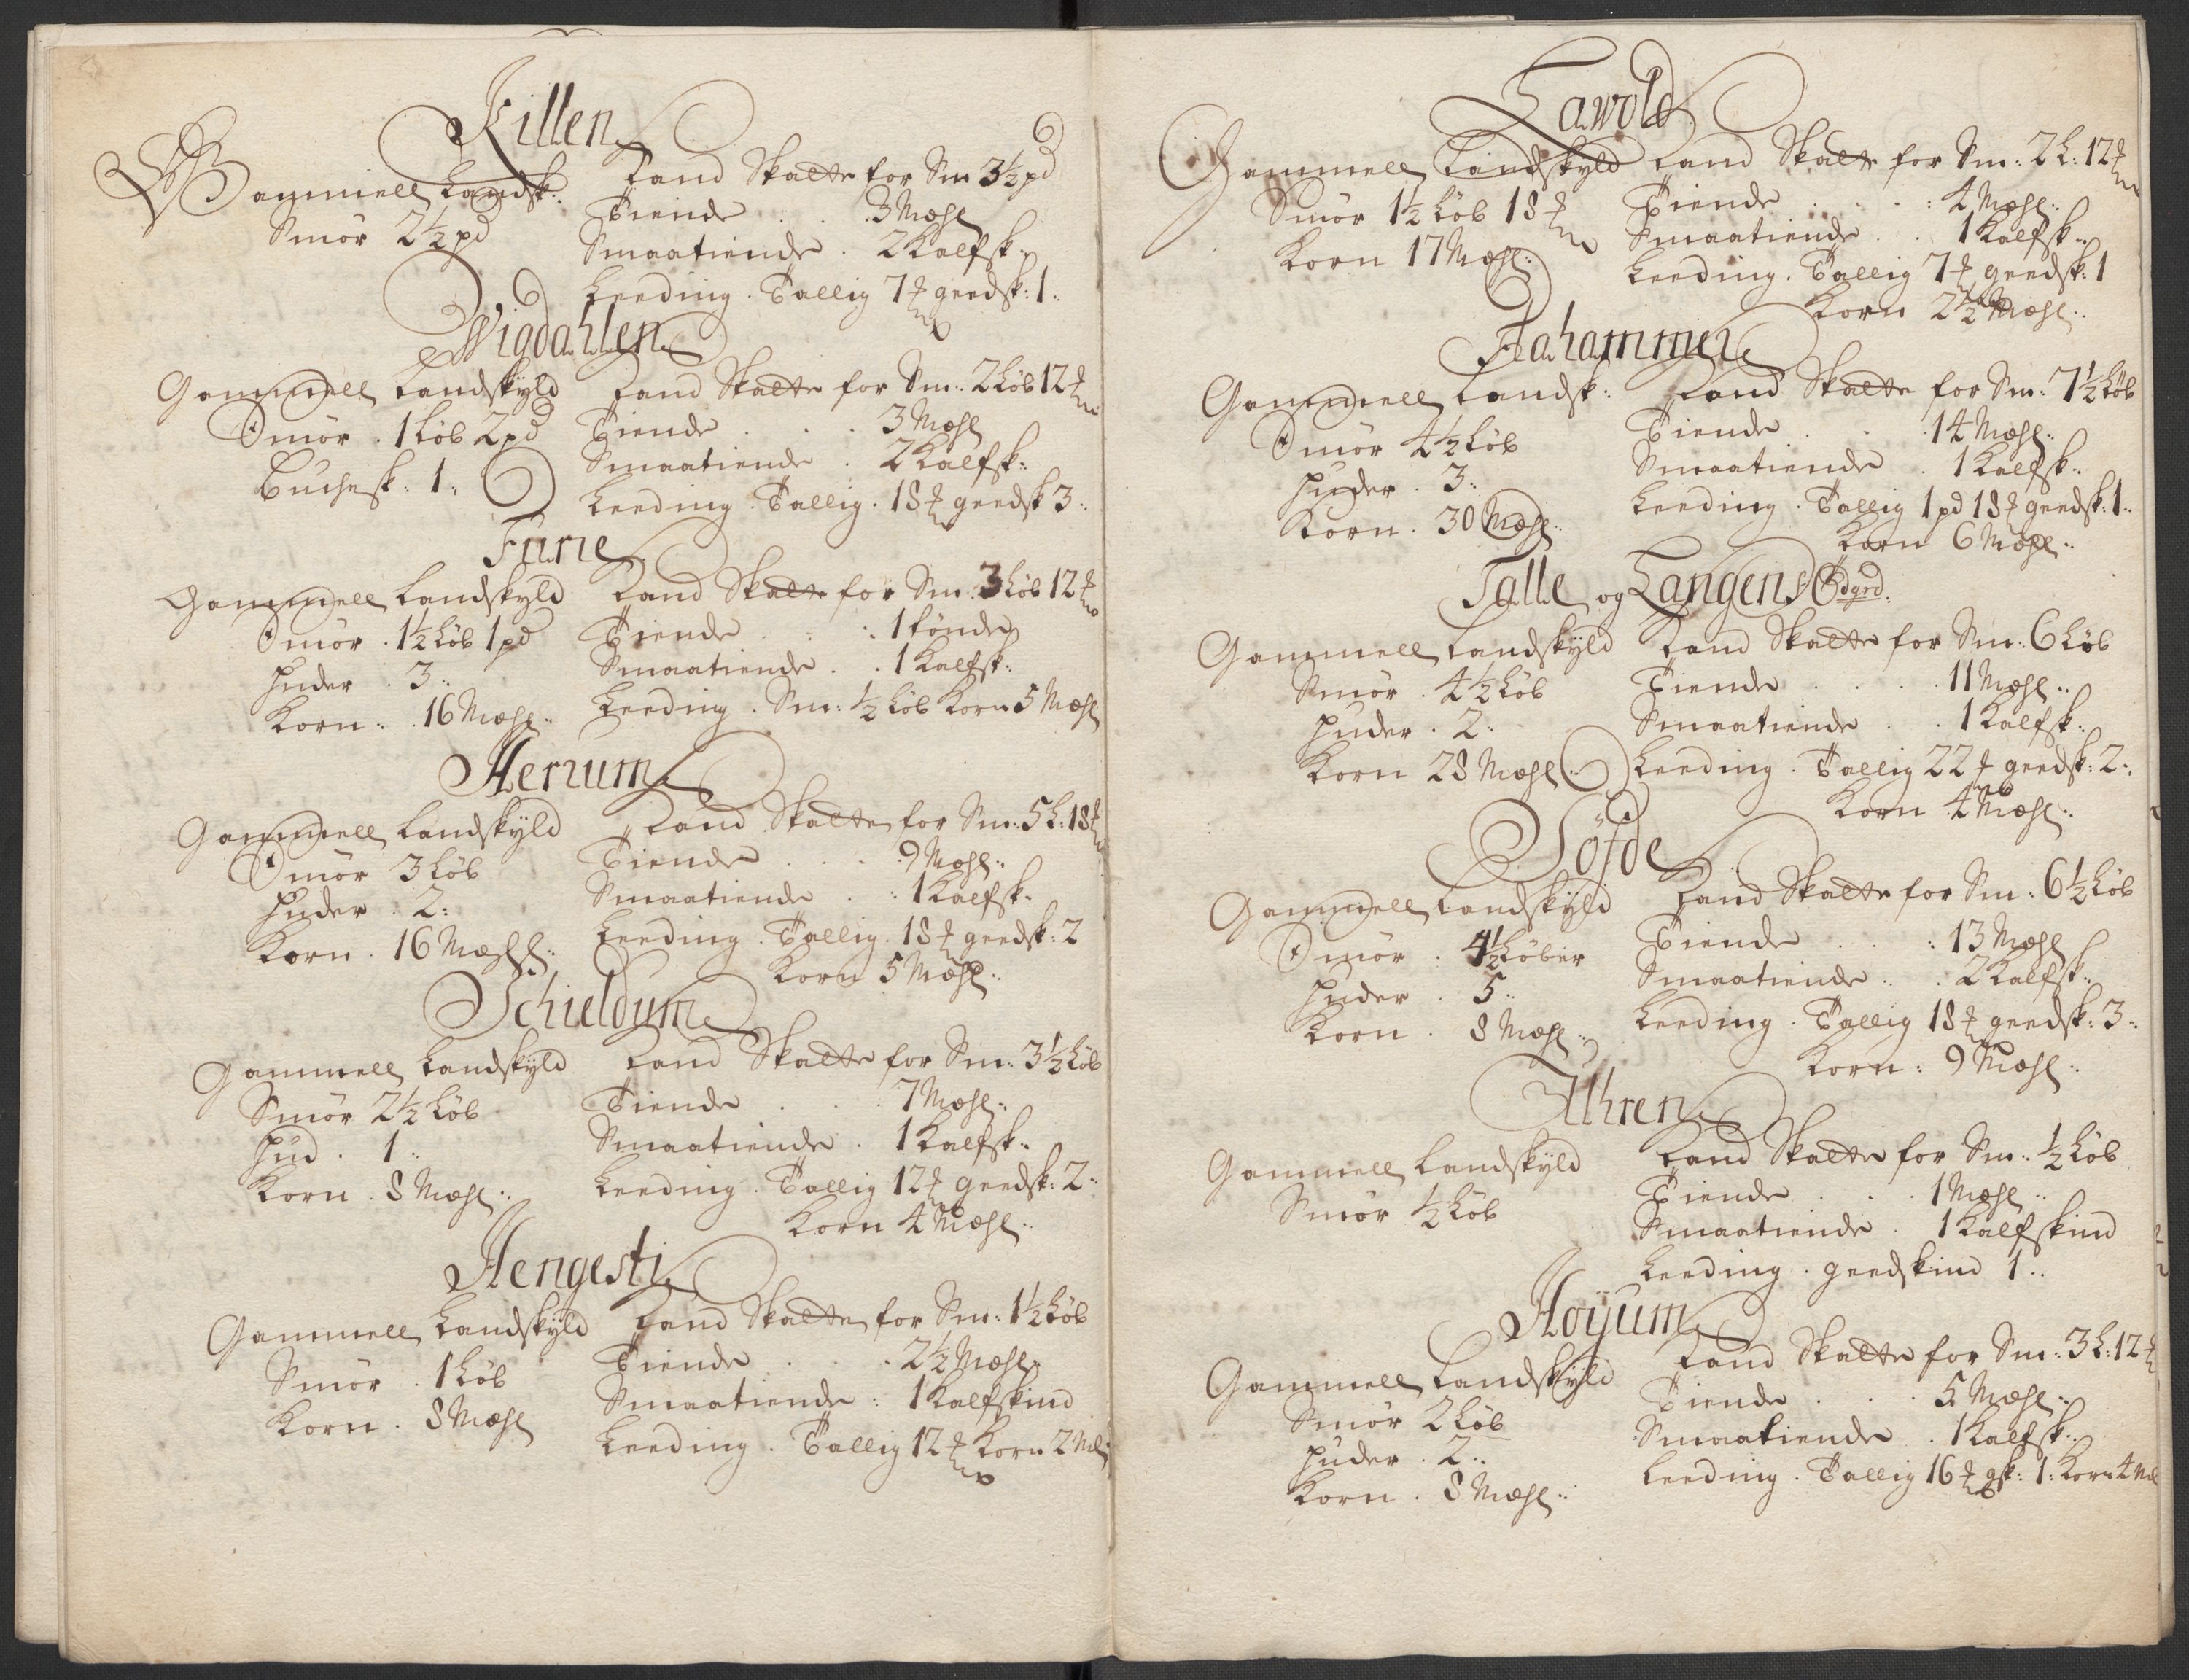 Killen
Gammell Landsk:
Smör 2½ pd
Land Skatte for Sm 3½ pd
Tiende . . 3 Mæhl
Smaatiende . 2 Kalfsk:
Leeding . Tallig 7 ℔ geedsk: 1..
Wigdahlen
Gammell Landskÿld
Smör . 1 Løb 2 pd
Buchesk: 1..
Land Skatte for Sm: 2 Løb 12 ℔
Tiende . . . 3 Mæhl
Smaatiende . 2 Kalfsk:
Leeding . Tallig . 18 ℔ geedsk 3..
Furie
Gammell Landskyld
Smör . 1½ Løb 1 pd
Huder . 3..
Korn . . 16 Mæhl..
Land Skatte for Sm: 3 Løb 12 ℔
Tiende . . . 1 tønde
Smaatiende . . 1 Kalfsk:
Leeding . Sm: ½ Løb Korn 5 Mæhl
Aerium
Gammell Landskÿld
Smör 3 Løb
Huder . 2:
Korn . 16 Mæhl:
Land Skatte for Sm: 5 L: 18 ℔
Tiende . . . 9 Mæhl..
Smaatiende . . 1 Kalfsk.
Leeding . Tallig . 18 ℔ geedsk: 2
Korn 5 Mæhl..
Schieldum
Gammell Landskyld
Smör 2½ Løb
Hud . 1..
Korn . 8 Mæhl..
Land Skatte for Sm: 3½ Løb
Tiende . . . 7 Mæhl..
Smaatiende . 1 Kalfsk..
Leeding . Tallig 12 ℔ geedsk: 2..
Korn 4 Mæhl..
Hengesti
Gammell Landskÿld
Smör . 1 Løb
Korn . 8 Mæhl
Land Skatte for Sm: 1½ Løb
Tiende . . . 2½ Mæhl..
Smaatiende : 1 Kalfskind
Leeding . Tallig 12 ℔ Korn 2 Ml:
Lawold
Gammell Landskyld
Smör 1½ Løb 18 ℔
Korn 17 Mæhl:
Land Skatte for Sm: 2 L: 12 ℔
Tiende . . . : 4 Mæhl..
Smaatiende . . 1 Kalfsk..
Leeding . Tallig 7 ℔ geedsk: 1
Korn 2½ Mæhl..
Aahammer
Gammell Landsk:
Smör 4½ Løb
Huder . 3..
Korn . 30 Mæhl..
Land Skatte for Sm: 7½ Løb
Tiende . . . 14 Mæhl..
Smaatiende . 1 Kalfsk..
Leeding . Tallig 1 pd 18 ℔ geedsk: 1..
Korn 6 Mæhl..
Talle og Langens Ødgrd:
Gammell Landskÿld
Smör . 4½ Løb
Huder . 2:
Korn 28 Mæhl..
Land Skatte for Sm: 6 Løb
Tiende . . . 11 Mæhl..
Smaatiende . . 1 Kalfsk..
Leeding . Tallig 22 ℔ geedsk: 2..
Korn 4 Mæhl..
Söfde
Gammell Landskÿld
Smör . 4½ Løber
Huder . 5..
Korn . 8 Mæhl..
Land Skatte for Sm: 6½ Løb
Tiende . . : 13 Mæhl
Smaatiende . . 2 Kalfsk..
Leeding . Tallig 18 ℔ geedsk: 3..
Korn : 9 Mæhl..
Ahren
Gammell Landskÿld
Smör ½ Løb
Land Skatte for Sm: ½ Løb
Tiende . . . 1 Mæhl..
Smaatiende . 1 Kalfskind
Leeding . geedskind 1..
Hoÿum
Gammell Landskÿld
Smör 2 Løb
Huder . 2..
Korn . 8 Mæhl..
Land Skatte for Sm: 3 L: 12 ℔
Tiende . . . 5 Mæhl..
Smaatiende . 1 Kalfsk..
Leeding . Tallig 16 ℔ gsk: 1: Korn 4 Ml